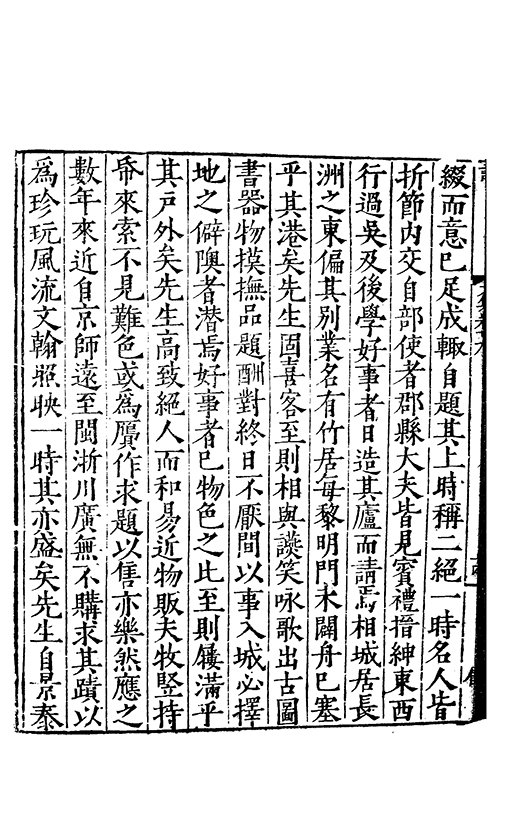 綴而意已足成輙自題其上時稱二絕一時名人皆
折節內交自部使者郡縣大夫皆見賓禮搢紳東西
行過吳及後學好事者日造其廬而請焉相城居長
洲之東偏其別業名有竹居每黎明門未闢舟已塞
乎其港矣先生固喜客至則相與讌笑咏歌出古圖
書器物摸撫品題酬對終日不厭間以事入城必擇
地之僻隩者潛焉好事者已物色之比至則屨滿乎
其戶外矣先生高致絕人而和易近物販夫牧竪持
帋來索不見難色或為贗作求題以售亦樂然應之
數年來近自京師遠至閩浙川廣無不購求其蹟以
為珍玩風流文翰照映一時其亦盛矣先生自景泰